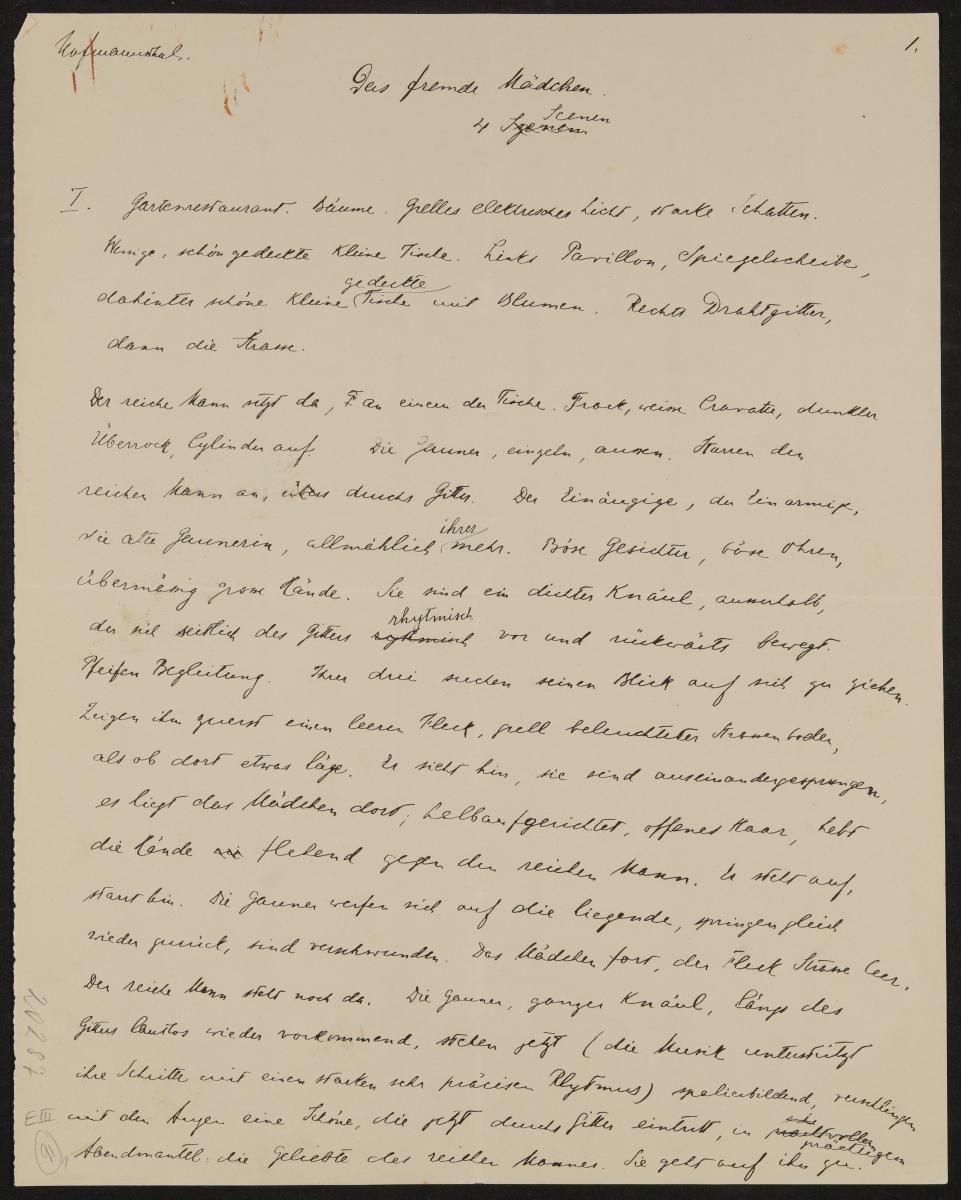 Hofmannsthal.
1.
Das fremde Mädchen.
Scenen
4 Szenen
I. Gartenrestaurant. Bäume. Grelles elektrisches Licht, starke Schatten.
Wenige, schön gedeckte kleine Tische. Links Pavillon, Spiegelscheibe,
gedeckte
dahinter schöne kleine Tische mit Blumen. Rechts Drahtgitter,
dann die Strasse.
Der reiche Mann sitzt da, an einem der Tische. Frack, weisse Cravatte, dunkler
Überrock, Cylinder auf. Die Gauner, einzeln, aussen. Starren den
reichen Mann an, durchs Gitter. Der Einäugige, der Einarmige,
ihrer
die alte Gaunerin, allmählich mehr. Böse Gesichter, böse Ohren,
übermässig grosse Hände. Sie sind ein dichter Knäul, ausserhalb,
rhytmisch
der sich seitlich des Gitters rythmisch vor und rückwärts bewegt.
Pfeifen Begleitung. Ihrer drei suchen seinen Blick auf sich zu ziehen.
Zeigen ihm zuerst einen leeren Fleck, grell beleuchteter Strassenboden,
als ob dort etwas läge. Er sieht hin, sie sind auseinandergesprungen,
es liegt das Mädchen dort, halbaufgerichtet, offenes Haar, hebt
die Hände flehend gegen den reichen Mann. Er steht auf,
starrt hin. Die Gauner werfen sich auf die liegende, springen gleich
wieder zurück, sind verschwunden. Das Mädchen fort, der Fleck Strasse leer.
Der reiche Mann steht noch da. Die Gauner, ganzer Knäul, längs des
Gitters lautlos wieder vorkommend, stehen jetzt (die Musik unterstützt
ihre Schritte mit einem starken sehr präcisen Rhytmus) spalierbildend, verschlingen
mit den Augen eine Schöne, die jetzt durchs Gitter eintritt, in
prächtigem
Abendmantel: die Geliebte des reichen Mannes. Sie geht auf ihn zu.
20287
E III